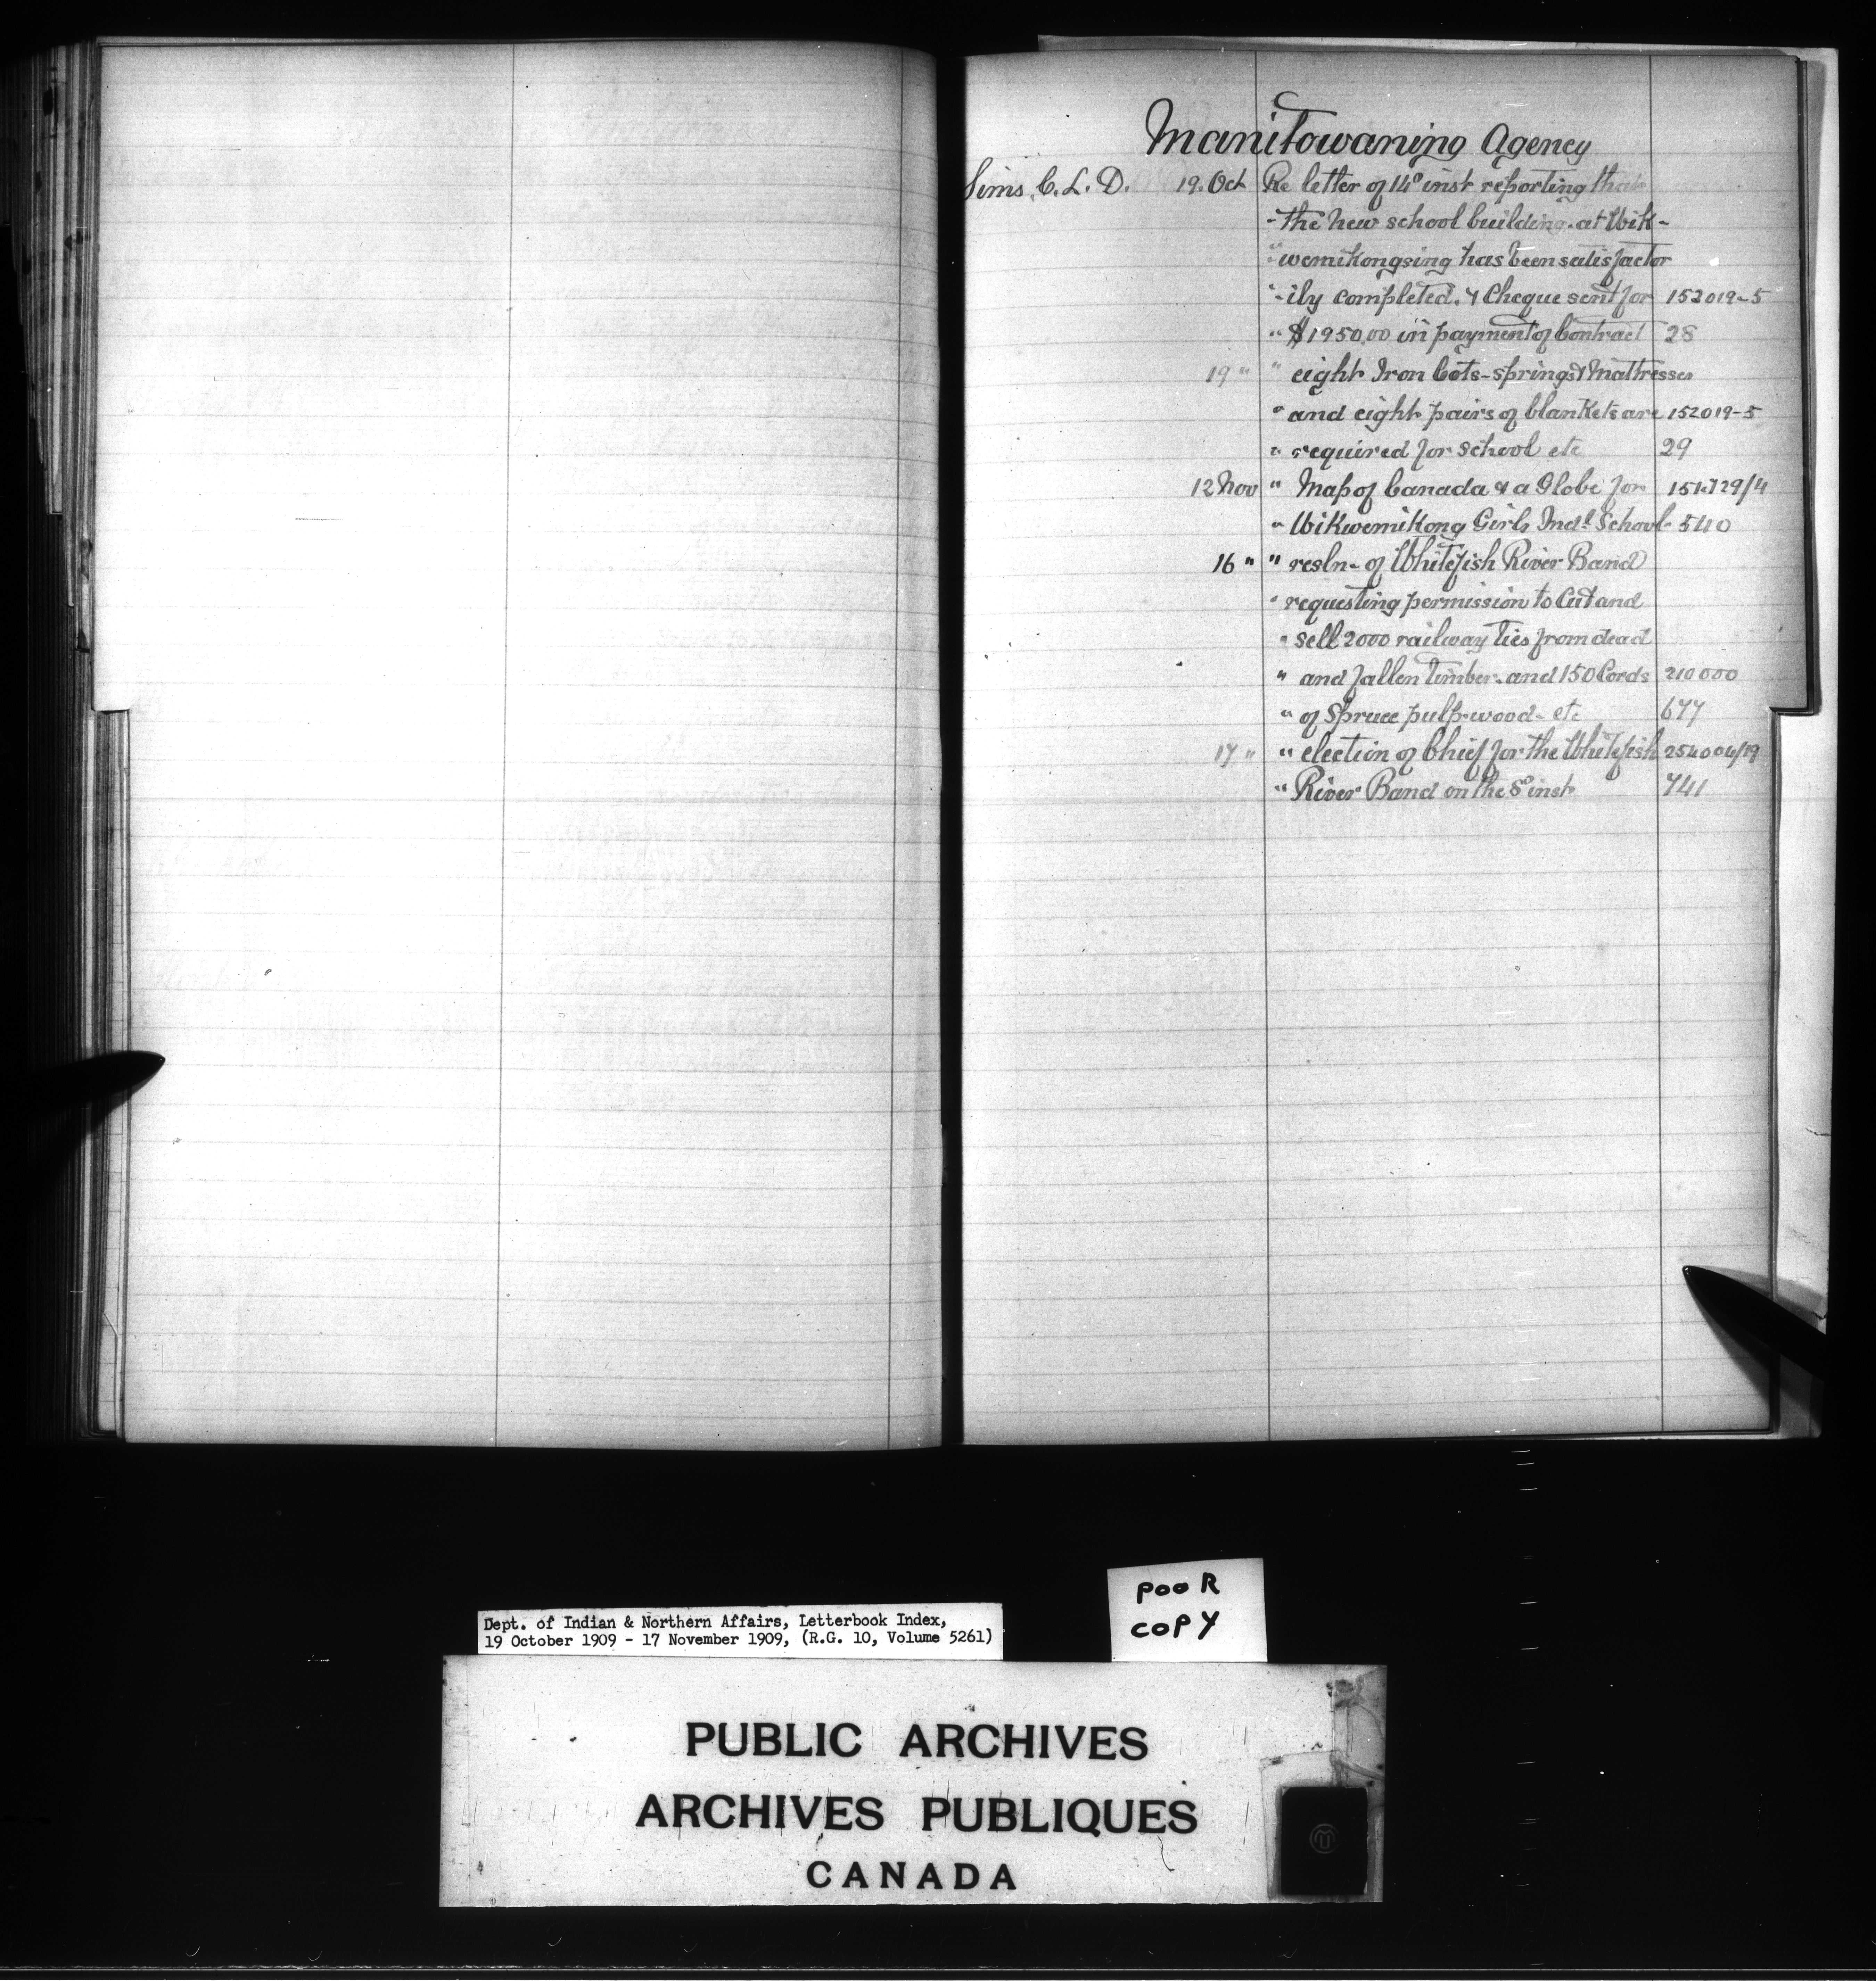 Manitowaning Agency
Sims, C. L. D. 19. Oct Re letter of 14º inst reporting that
- the new school building. at Wik-
" wemikongsing has been satisfactor
"- ily completed. & Cheque sent for 152019-5
" $1950.00 in payment of Contract 28
19 " " eight Iron Cots-springs & Mattresses
" and eight pairs of blankets are 152019-5
" required for school etc 29
12 Nov " Map of Canada & a Globe for 151.729/4
" Wikwemikong Girls Indl School- 540
16 " " resln- of Whitefish River Band
" requesting permission to Cut and
" sell 2000 railway ties from dead
" and fallen timber. and 150 Cords 210000
" of Spruce pulp-wood- etc 677
17 " " election of Chief for the Whitefish 254004/19
" River Band on the 8º inst 741
POOR
COPY
Dept. of Indian & Northern Affairs, Letterbook Index,
19 October 1909 - 17 November 1909, (R.G. 10, Volume 5261)
PUBLIC ARCHIVES
ARCHIVES PUBLIQUES
CANADA